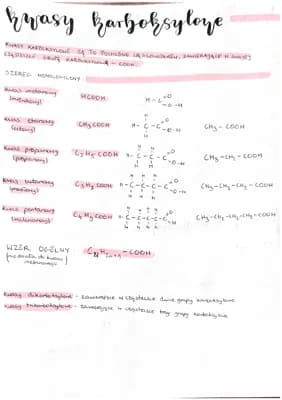 Kwasy karboksylowe
KWASY KARBOKSYLOWE SĄ TO POCHODNE WĘGLOWODORÓW, ZAWIERAJĄCE W SWOJEJ
CZĄSTECZCE GRUPĘ KARBOKSYLOWĄ - COOH.
SZEREG HOMOLOGICZNY:
kwas metanowy
(mrówkowy)
HCOOH
H - C O O - H
kwas etanowy
(octowy)
CH3COOH
H H - C - C O O - H H
CH3 - COOH
kwas propanowy
(propionowy)
C2H5COOH
H H H - C - C - C O O - H H H
CH3 - CH2 - COOH
kwas butanowy
(masłowy)
C3H7COOH
H H H H - C - C - C - C O O - H H H H
CH3 - CH2 - CH2 - COOH
kwas pentanowy
(walerianowy)
C4H9COOH
H H H H H - C - C - C - C - C O O - H H H H H
CH3 - CH2 - CH2 - CH2 - COOH
WZÓR OGÓLNY
CnH2n+1 - COOH
kwasy dikarboksylowe - zawierające w cząsteczce dwie grupy karboksylowe
kwasy trikarboksylowe - zawierające w cząsteczce trzy grupy karboksylowe